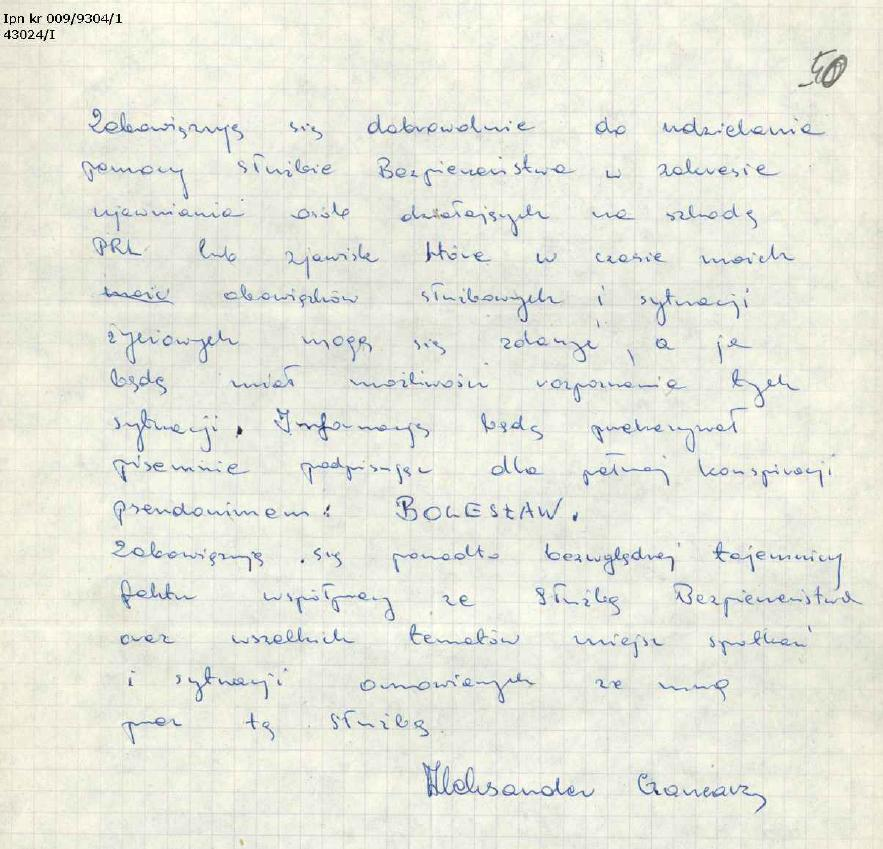 Ipn kr 009/9304/1
43024/I
50
Zobowiązuję się dobrowolnie do udzielania
pomocy Służbie Bezpieczeństwa w zakresie
ujawniania osób działających na szkodę
PRL lub zjawisk które w czasie moich
obowiązków służbowych i sytuacji
życiowych mogą się zdarzyć, a ja
będę miał możliwości rozpoznania tych
sytuacji. Informację będę przekazywał
pisemnie podpisując dla pełnej konspiracji
pseudonimem: BOLESŁAW.
Zobowiązuję się ponadto bezwzględnej tajemnicy
faktu współpracy ze Służbą Bezpieczeństwa
oraz wszelkich tematów miejsc spotkań
i sytuacji omawianych ze mną
przez tę Służbę.
Aleksander